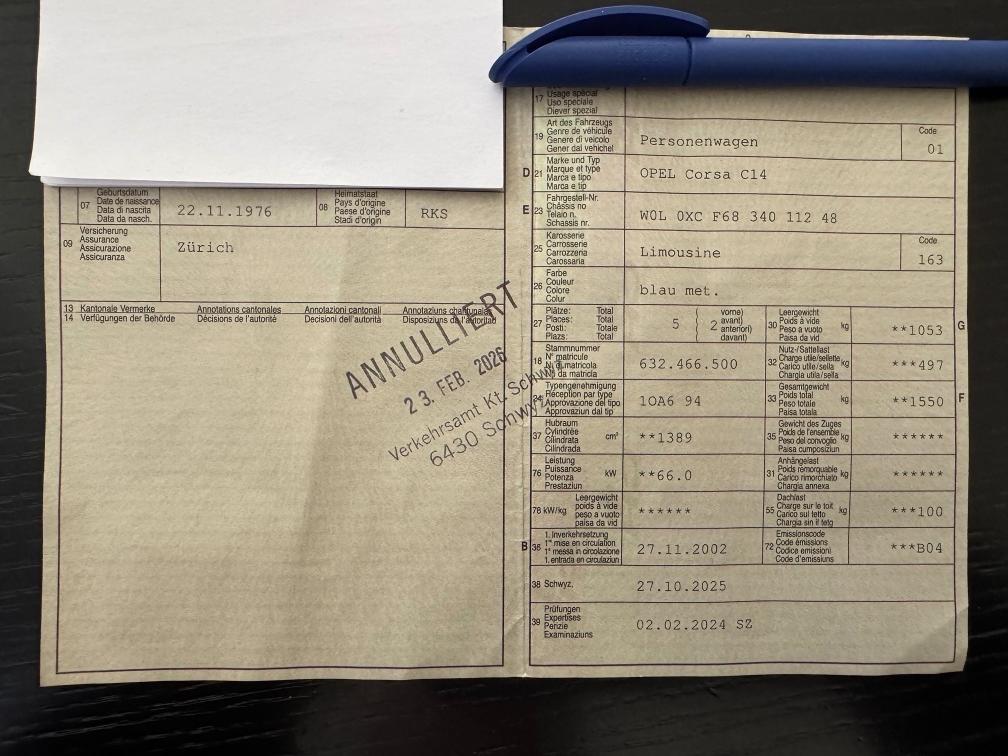 07 Geburtsdatum
Date de naissance
Data di nascita
Data da nasch.
22.11.1976
08 Heimatstaat
Pays d'origine
Paese d'origine
Stadi d'origin
RKS
09 Versicherung
Assurance
Assicurazione
Assicuranza
Zürich
13 Kantonale Vermerke Annotations cantonales Annotazioni cantonali Annotaziuns chantunalas
14 Verfügungen der Behörde Décisions de l'autorité Decisioni dell'autorità Disposiziuns da l'autoritad
ANNULLIERT
23. FEB. 2026
Verkehrsamt Kt. Schwyz
6430 Schwyz
17 Usage spécial
Uso speciale
Diever spezial
19 Art des Fahrzeugs
Genre de véhicule
Genere di veicolo
Gener dal vehichel
Personenwagen
Code
01
D 21 Marke und Typ
Marque et type
Marca e tipo
Marca e tip
OPEL Corsa C14
E 23 Fahrgestell-Nr.
Châssis no
Telaio n.
Schassis nr.
W0L 0XC F68 340 112 48
25 Karosserie
Carrosserie
Carrozzeria
Carossaria
Limousine
Code
163
26 Farbe
Couleur
Colore
Colur
blau met.
27 Plätze: Total
Places: Total
Posti: Totale
Plazs: Total
5
2
vorne)
avant)
anteriori)
davant)
30 Leergewicht
Poids à vide
Peso a vuoto
Paisa da vid
kg
**1053
G
18 Stammnummer
N° matricule
N. matricola
Nr. da matricla
632.466.500
32 Nutz-/Sattellast
Charge utile/sellette
Carico utile/sella
Chargia utila/sella
kg
***497
24 Typengenehmigung
Réception par type
Approvazione del tipo
Approvaziun dal tip
1OA6 94
33 Gesamtgewicht
Poids total
Peso totale
Paisa totala
kg
**1550
F
37 Hubraum
Cylindrée
Cilindrata
Cilindrada
cm³
**1389
35 Gewicht des Zuges
Poids de l'ensemble
Peso del convoglio
Paisa cumposiziun
kg
******
76 Leistung
Puissance
Potenza
Prestaziun
kW
**66.0
31 Anhängelast
Poids remorquable
Carico rimorchiato
Chargia annexa
kg
******
78 kW/kg
Leergewicht
poids à vide
peso a vuoto
paisa da vid
******
55 Dachlast
Charge sur le toit
Carico sul tetto
Chargia sin il tetg
kg
***100
B 36 1. Inverkehrsetzung
1re mise en circulation
1a messa in circolazione
1. entrada en circulaziun
27.11.2002
72 Emissionscode
Code émissions
Codice emissioni
Code d'emissiuns
***B04
38 Schwyz.
27.10.2025
39 Prüfungen
Expertises
Perizie
Examinaziuns
02.02.2024 SZ